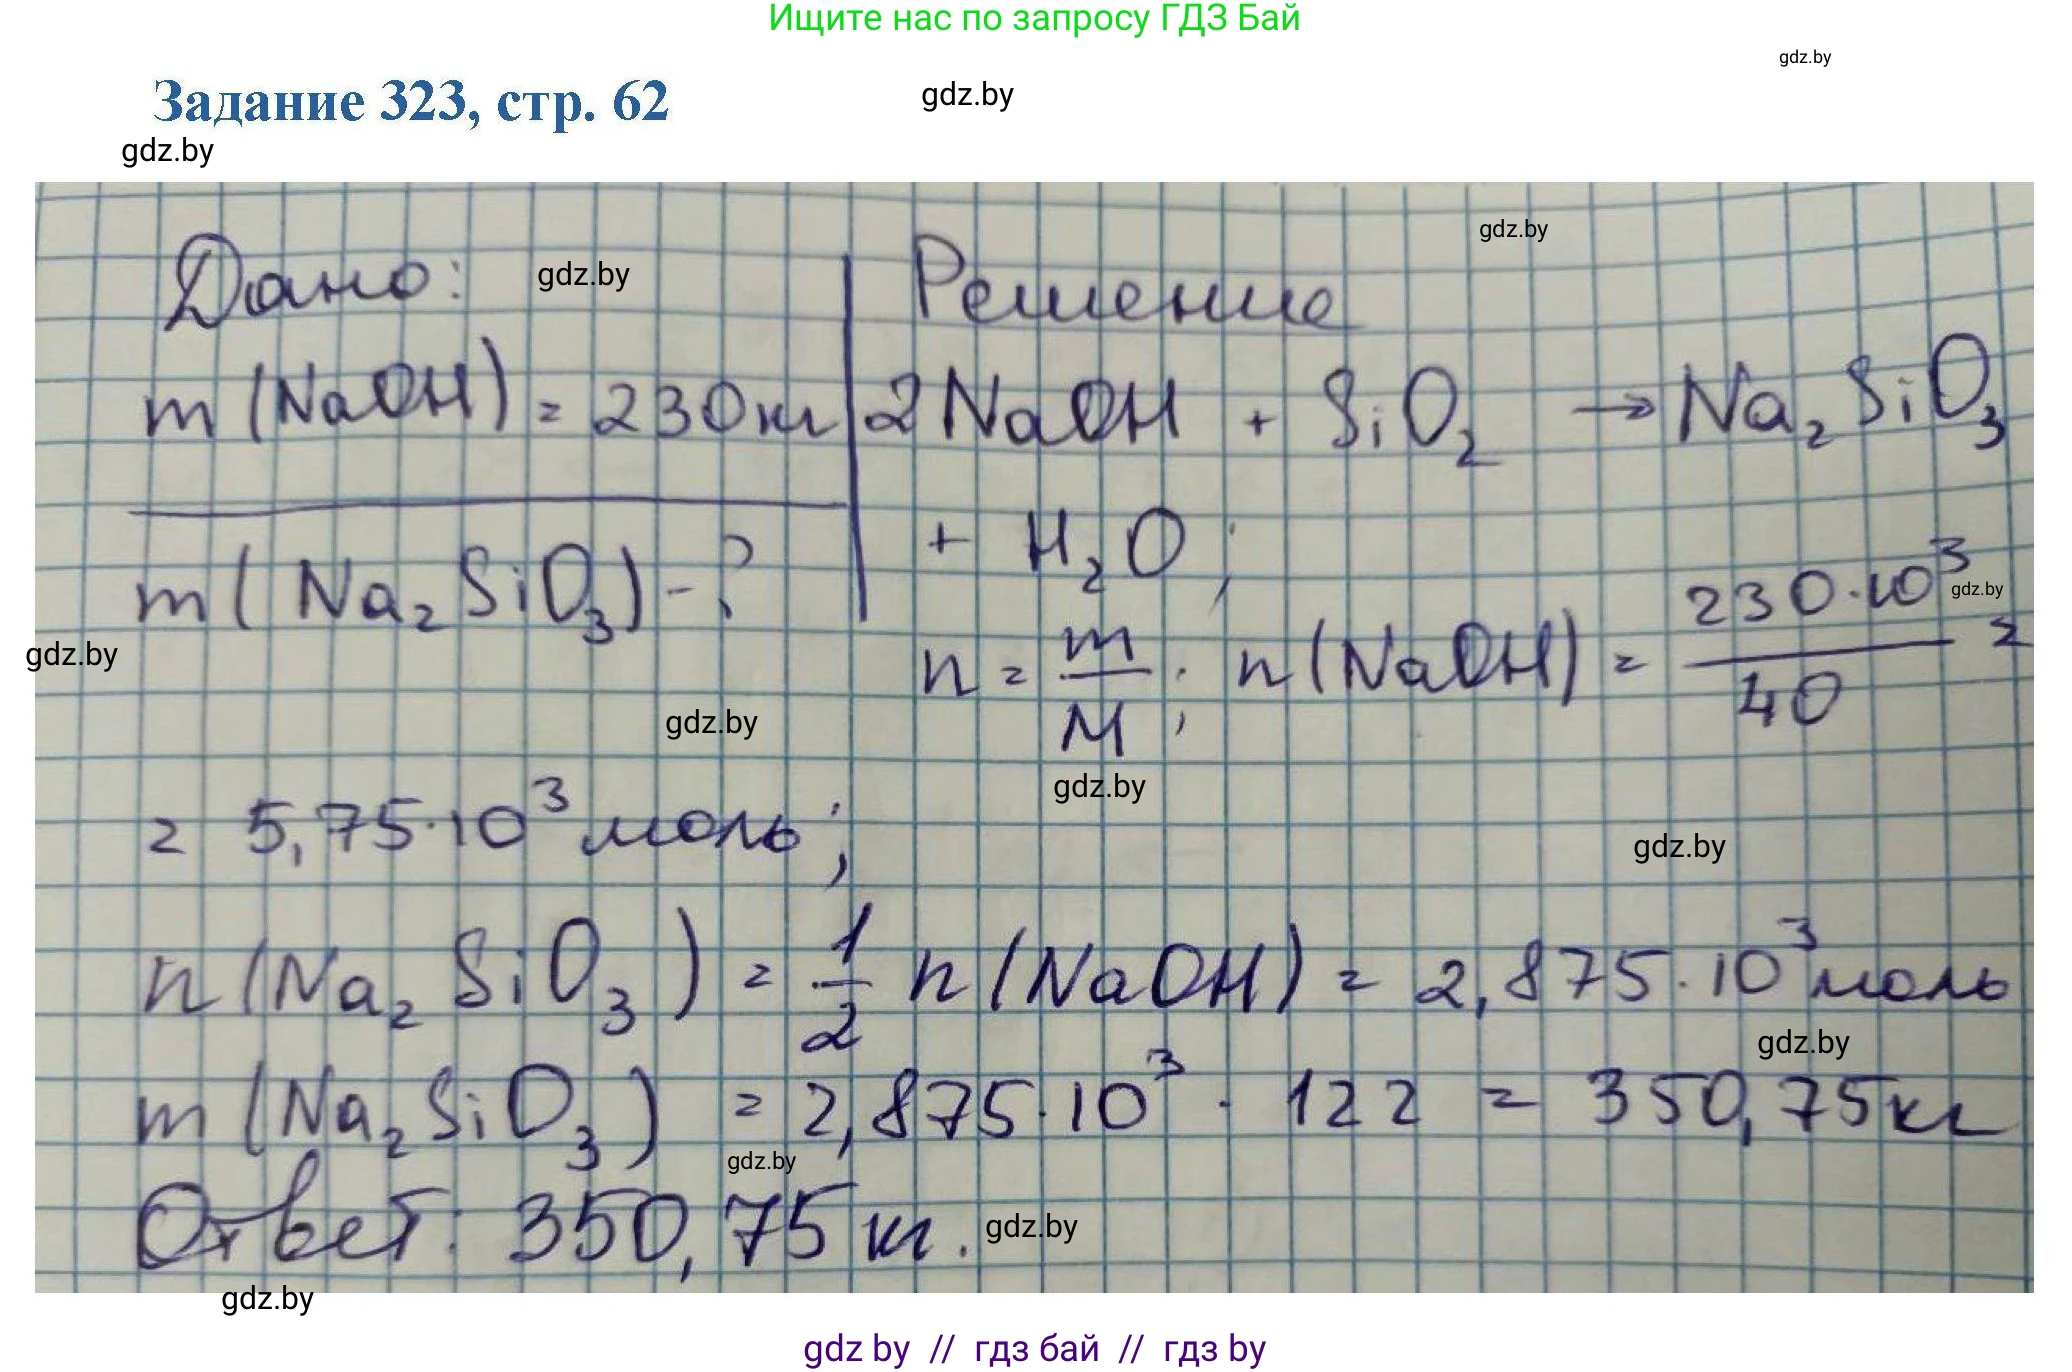 Ищите нас по запросу ГДЗ Бай
gdz.by
Задание 323, стр. 62
gdz.by
gdz.by
gdz.by
Дано: gdz.by | Решение
m(NaOH) = 230 кг | 2NaOH + SiO₂ → Na₂SiO₃
+ H₂O;
m(Na₂SiO₃) - ?
gdz.by
n = m/M; n(NaOH) = 230·10³/40 =
gdz.by
gdz.by
gdz.by
= 5,75·10³ моль;
gdz.by
n(Na₂SiO₃) = 1/2 n(NaOH) = 2,875·10³ моль
gdz.by
m(Na₂SiO₃) = 2,875·10³ · 122 = 350,75 кг
gdz.by
Ответ: 350,75 кг.
gdz.by
gdz.by
gdz by // гдз бай // гдз by